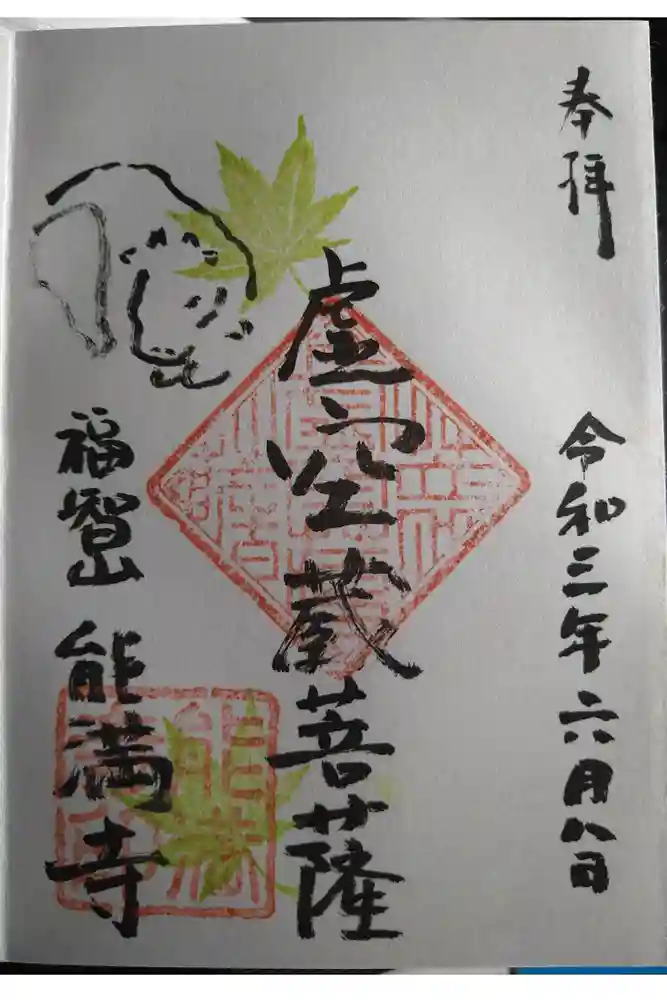 奉拝
令和三年六月八日
虚空蔵菩薩
福智山 能満寺